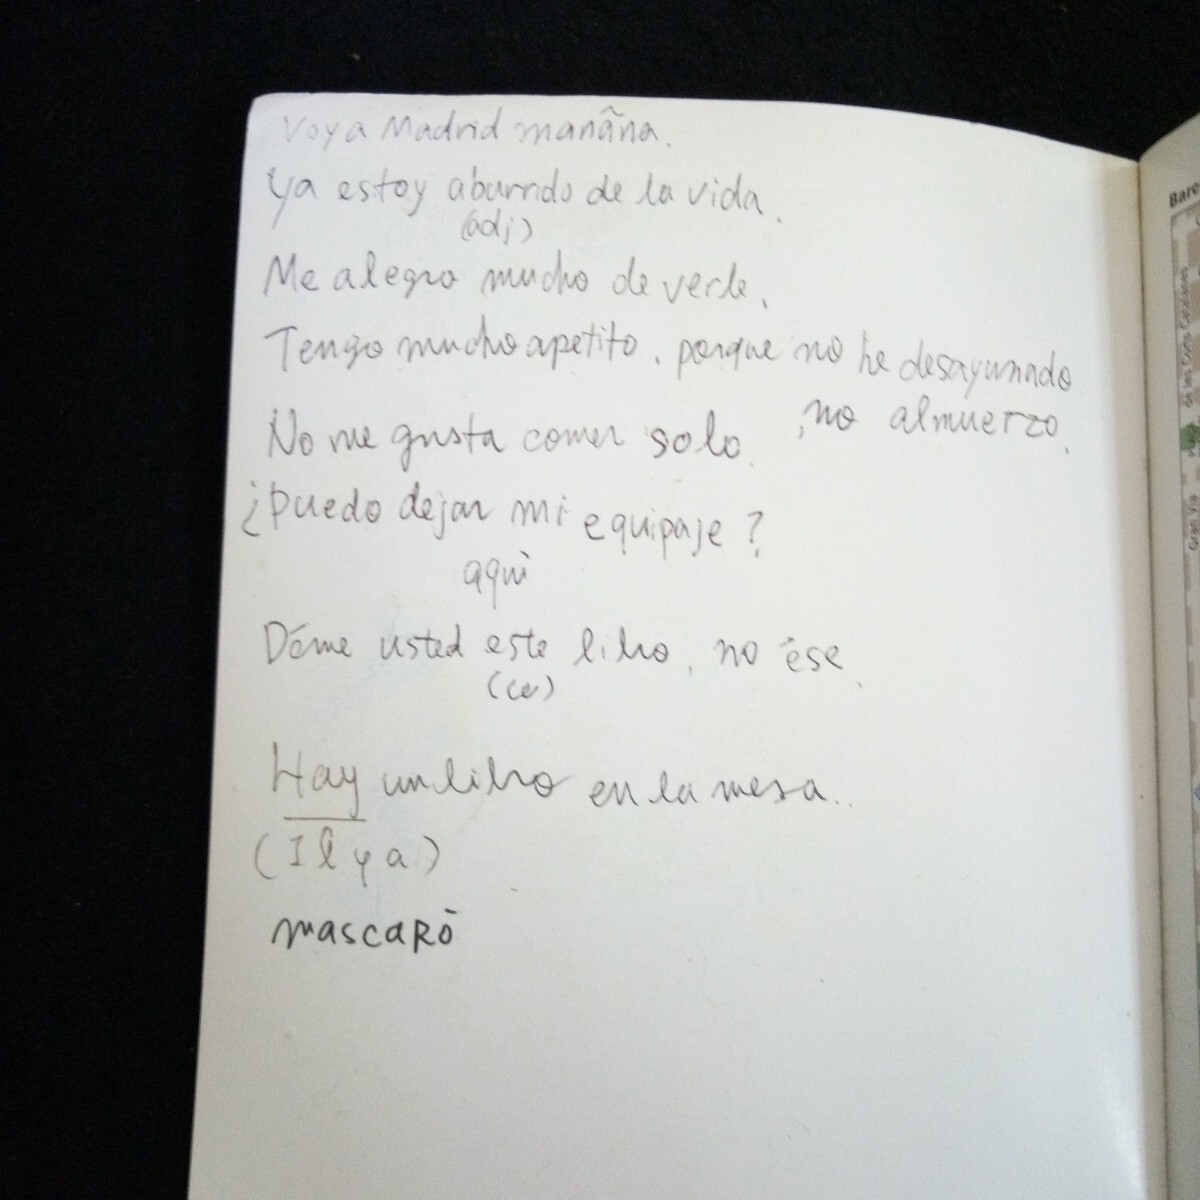 Voy a Madrid manãna.
Ya estoy aburrido de la vida.
(adj)
Me alegro mucho de verle.
Tengo mucho apetito, porque no he desayunado
, no almuerzo.
No me gusta comer solo.
¿Puedo dejar mi equipaje?
aquì
Déme usted este libro, no ése.
(ce)
Hay un libro en la mesa..
(Il y a)
mascaRó
Barc
de les Corts Catalanes
Gran Via